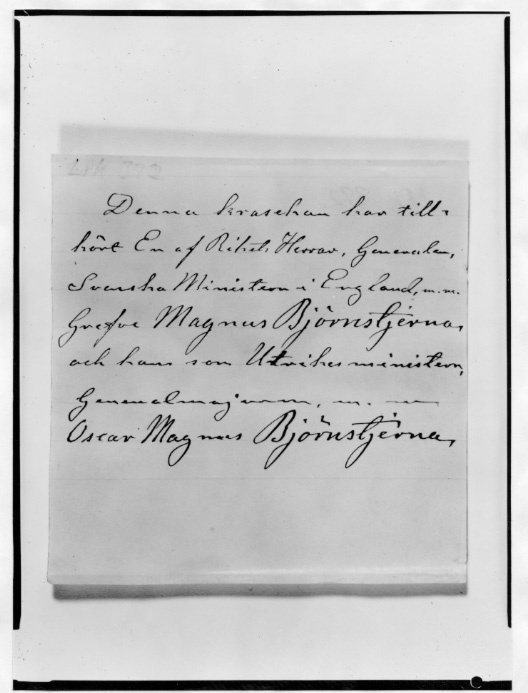 LRK 322
Denna kraschan har till-
hört En af Rikets Herrar, Generalen,
Svenska Ministern i England, m.m.
Grefve Magnus Björnstjerna,
och hans son Utrikesministern,
Generalmajoren, m. m
Oscar Magnus Björnstjerna,